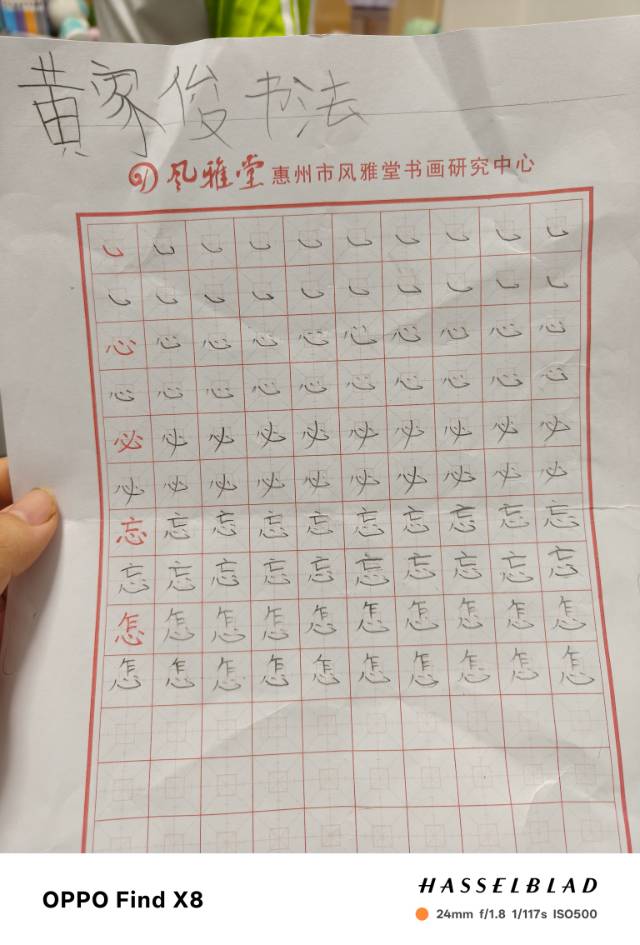 黄家俊书法
风雅堂 惠州市风雅堂书画研究中心
㇃ ㇃ ㇃ ㇃ ㇃ ㇃ ㇃ ㇃ ㇃ ㇃
㇃ ㇃ ㇃ ㇃ ㇃ ㇃ ㇃ ㇃ ㇃ ㇃
心 心 心 心 心 心 心 心 心 心
心 心 心 心 心 心 心 心 心 心
必 必 必 必 必 必 必 必 必 必
必 必 必 必 必 必 必 必 必 必
忘 忘 忘 忘 忘 忘 忘 忘 忘 忘
忘 忘 忘 忘 忘 忘 忘 忘 忘 忘
怎 怎 怎 怎 怎 怎 怎 怎 怎 怎
怎 怎 怎 怎 怎 怎 怎 怎 怎 怎
OPPO Find X8
HASSELBLAD
24mm f/1.8 1/117s ISO500